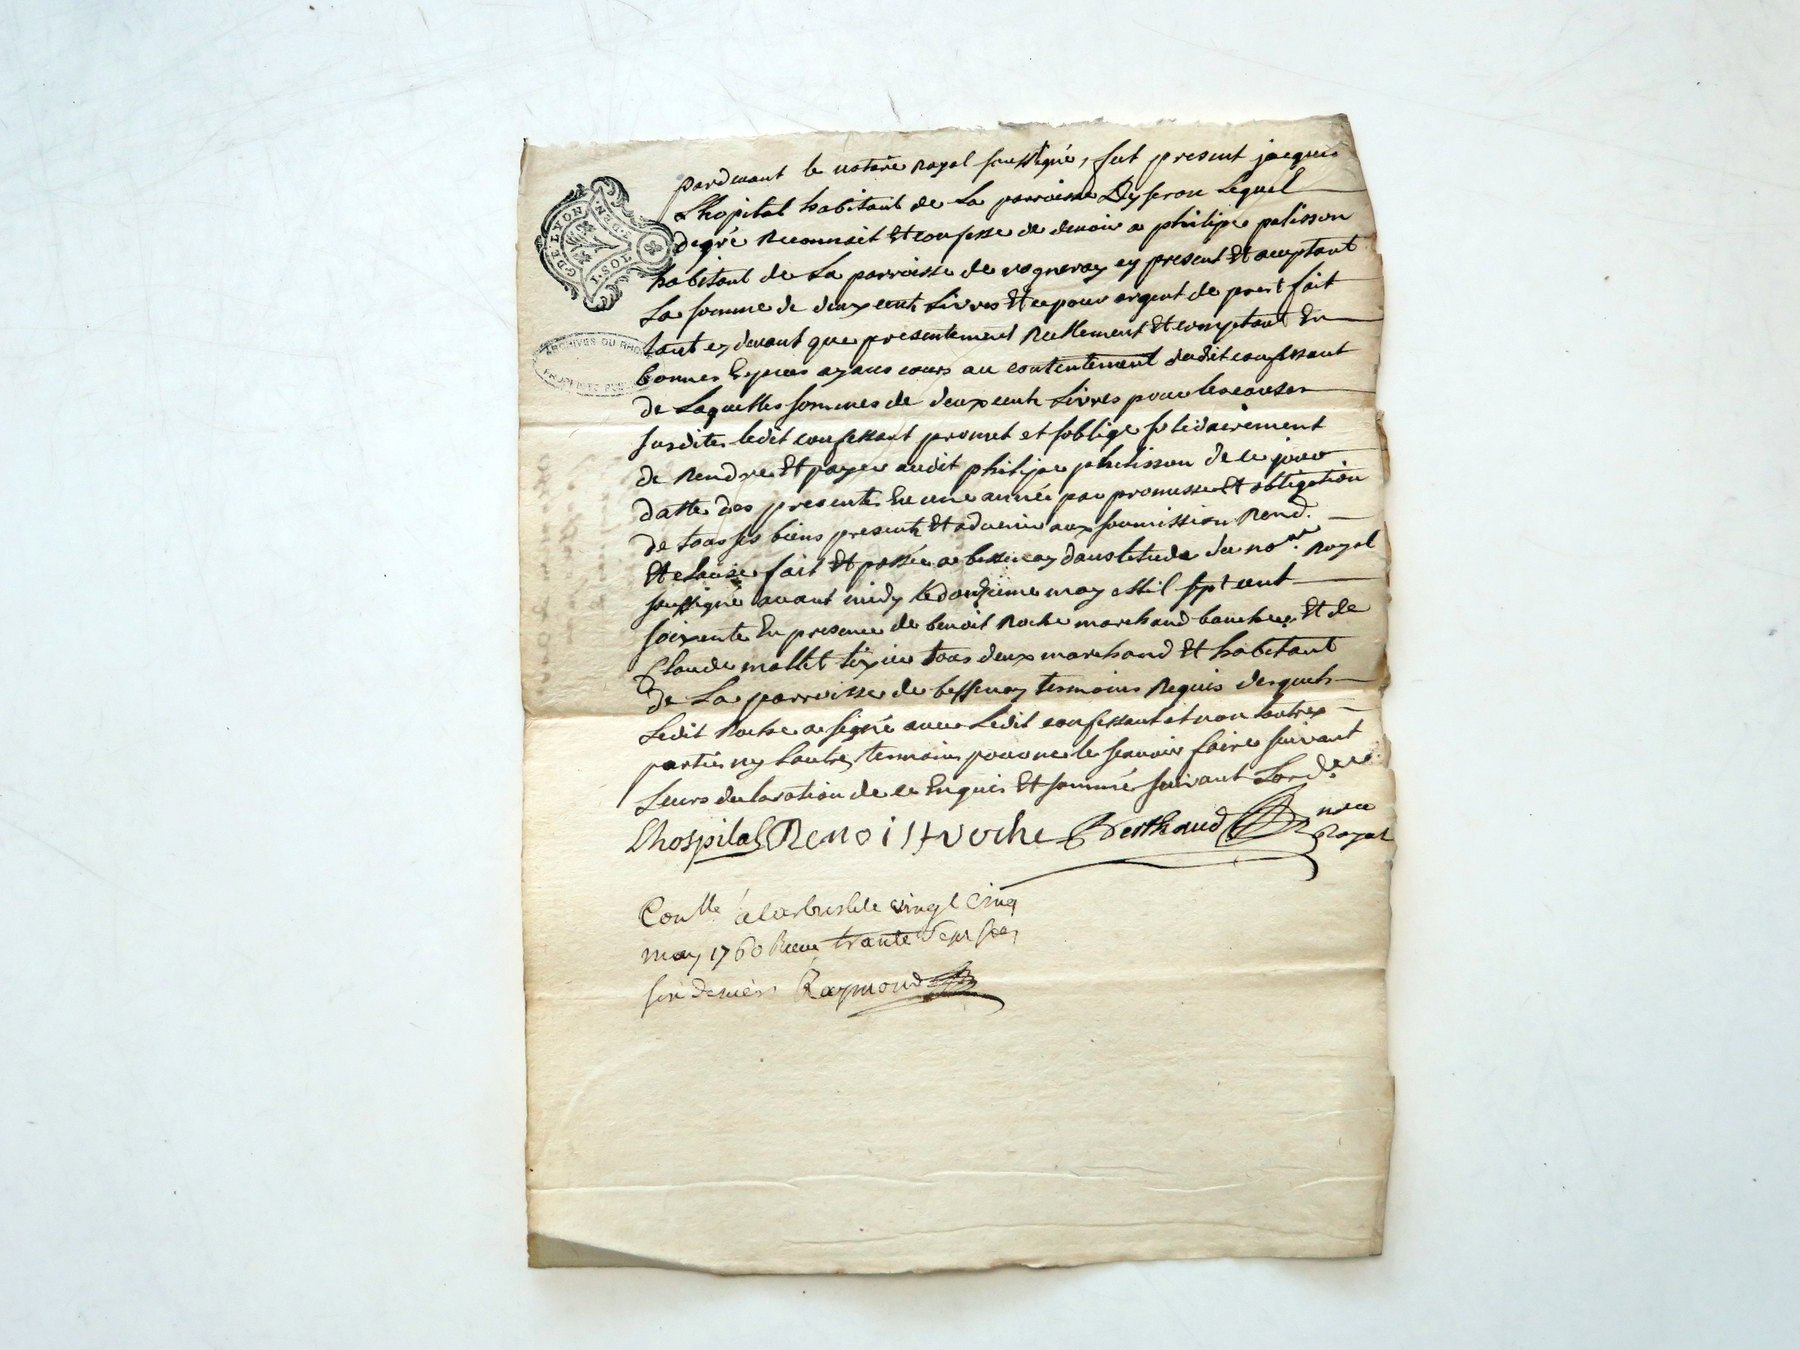 G DE LYON
I. SOL
ARCHIVES DU RHONE
pardevant le notaire royal soussigné, fut present jacques
Lhopital habitant de La parroisse Dyseron Lequel
degré Reconnoit Et confesse de devoir a philipe pelisson
habitant de La parroisse de vogneray cy present Et aceptant
La somme de deux cent Livres Et ce pour argent de prest fait
tant cy devant que presentement Reellement Et comptant En
bonnes Especes ayans cours au contentement dudit confessant
de Laquelles sommes de deux cent Livres pour les causes
susdites ledit confessant promet et soblige solidairement
de Rendre Et payer audit philipe phelisson de ce jour
datte des presentes En une année par promesse Et obligation
de tous ses biens presents Et advenir aux soumission Rend.
Et clause fait Et passé a bessenay dans letude du no.re Royal
soussigné avant midy le douzieme may mil sept cent
soixante En presence de benoit Roche marchand boucher Et de
Claude mallet tixier tous deux marchand Et habitant
de La parroisse de bessenay temoins Requis desquels
Ledit Roche a signé avec Ledit confessant et non lautres
parties ny Lautre temoins pour ne le scavoir faire suivant
Leurs declaration de ce Enquis Et sommés suivant Lord.ce
Lhospital Benoist roche Berthaud n.re
Royal
Con.lle a larbresle le vingt cinq
may 1760 Receu trante sept sols
six deniers Raymond